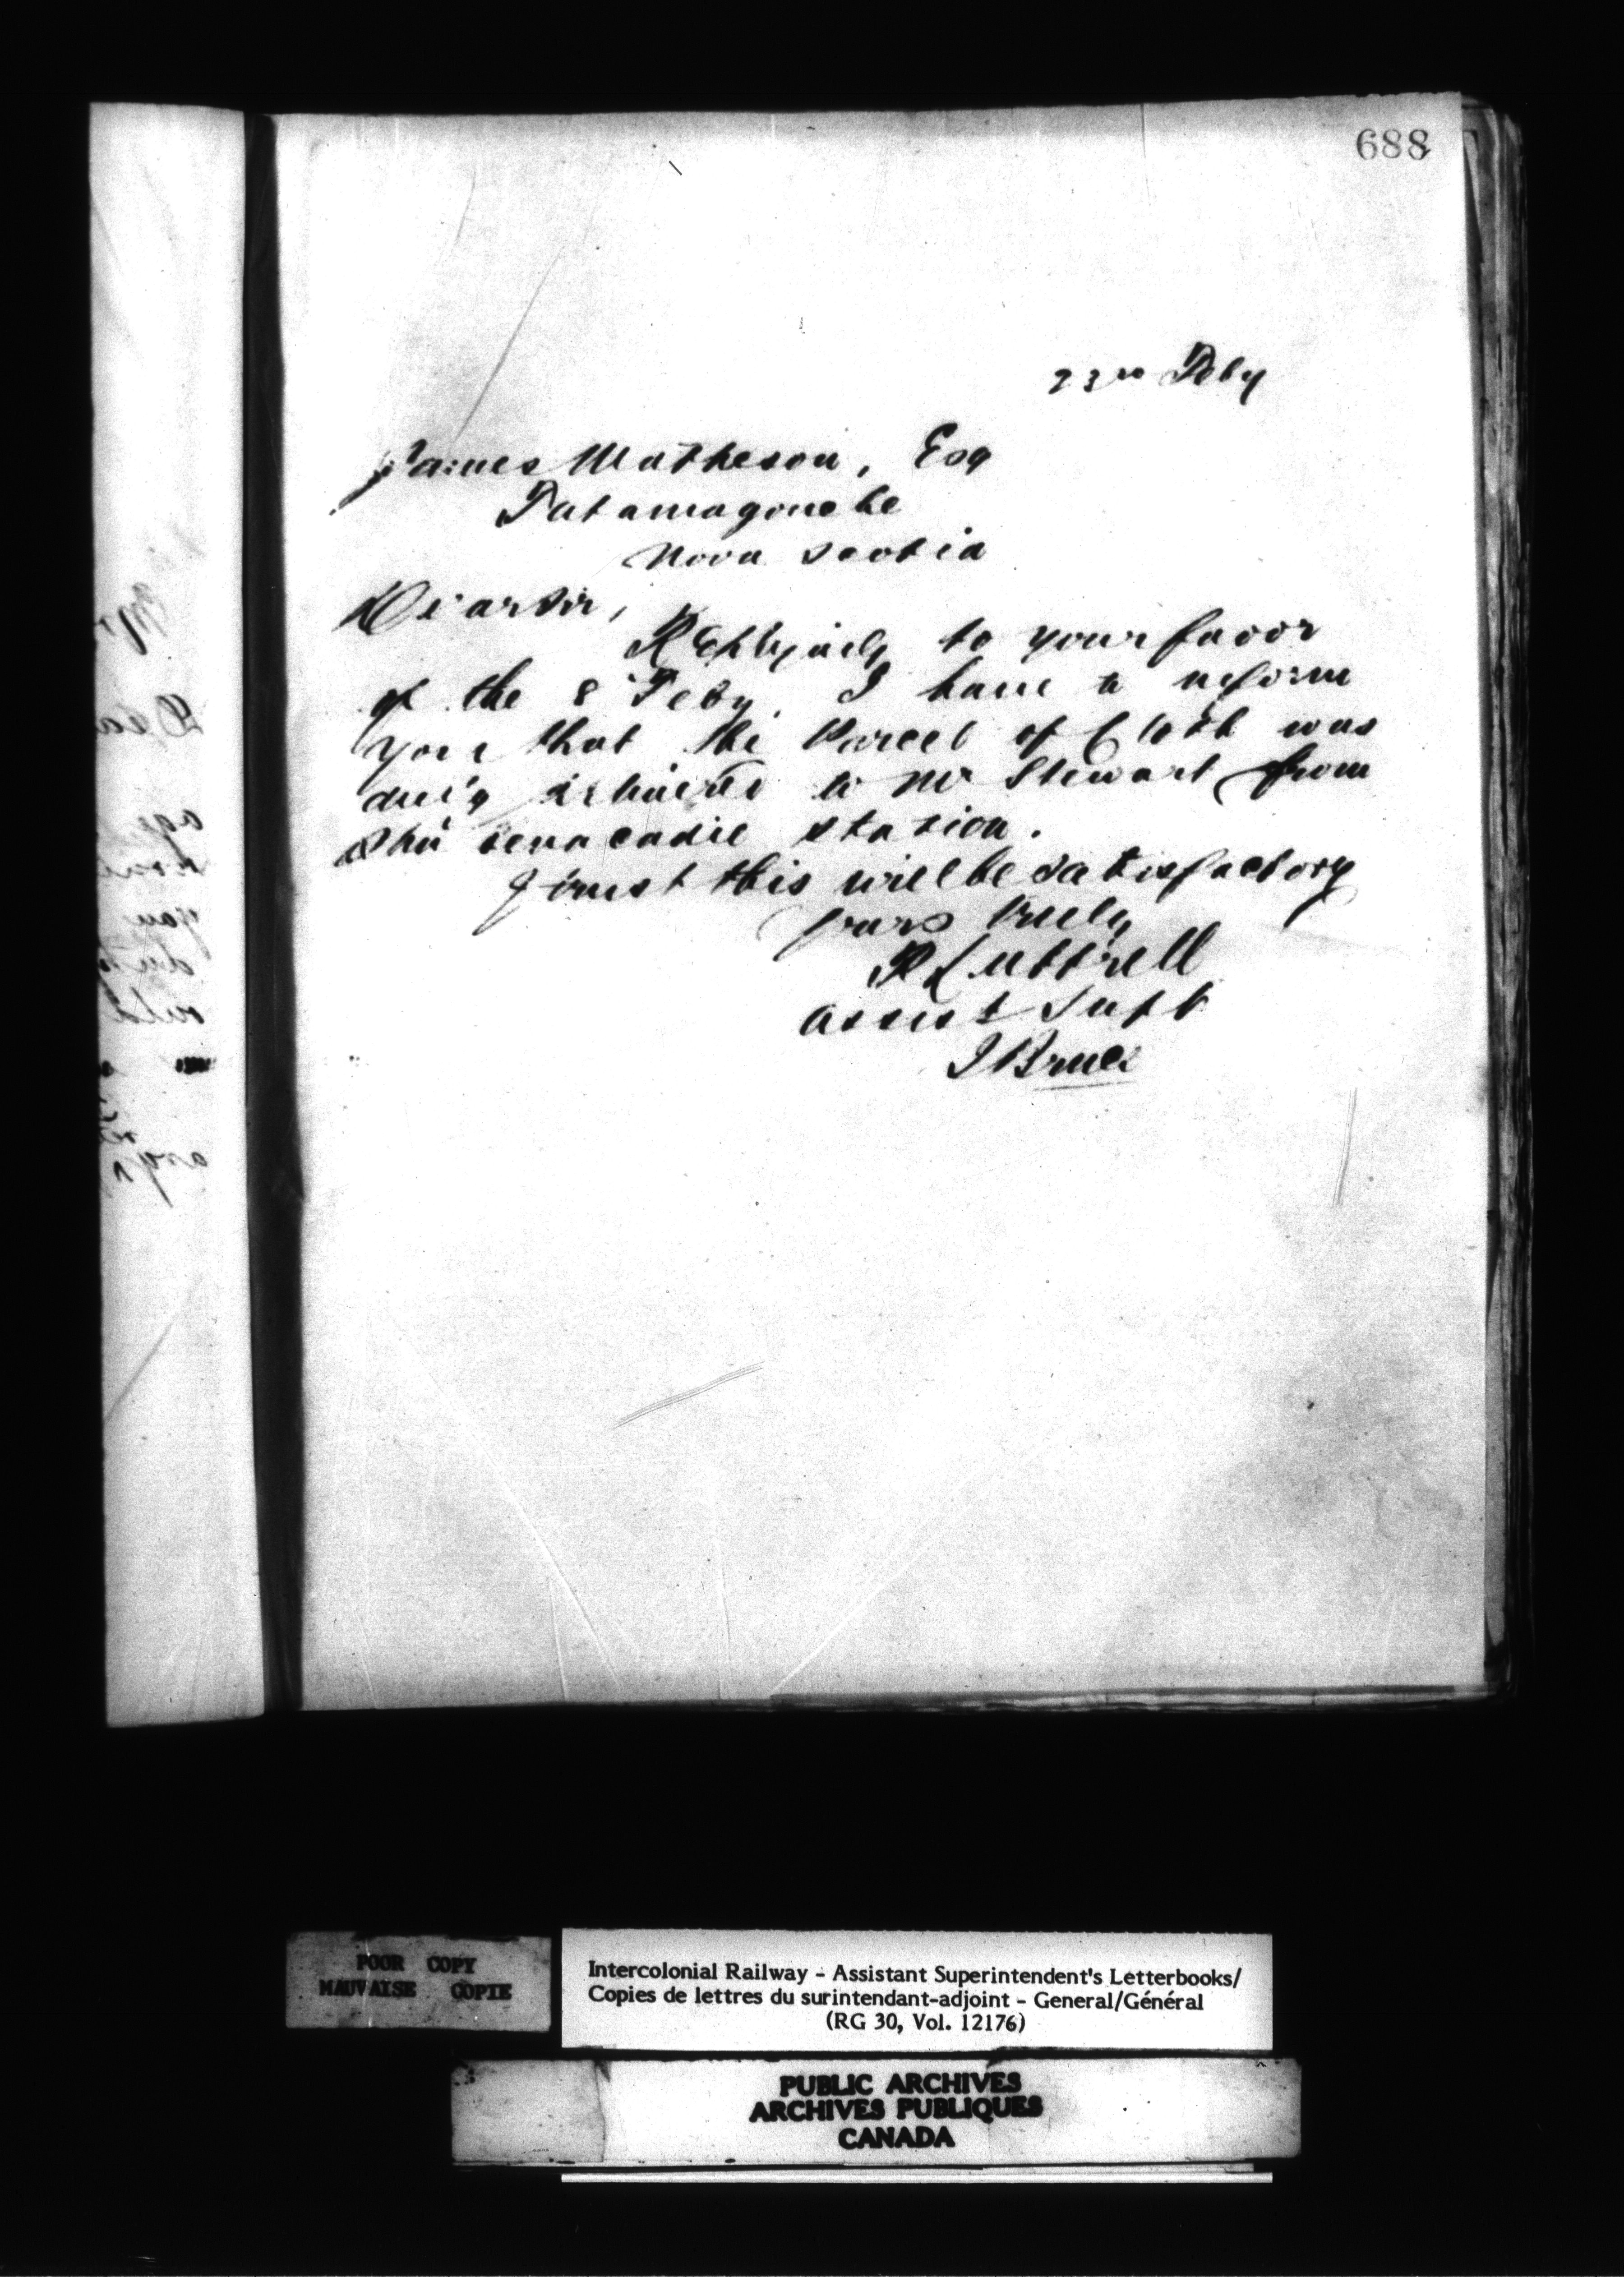 688
23rd Feby
James Matheson, Esq
Tatamagouche
Nova Scotia
Dear Sir,
Replying to your favor
of the 8 Feby. I have to inform
you that the Parcel of Cloth was
duly to Mr Stewart from
Shubenacadie station.
I trust this will be satisfactory
Yours truly
R Luttrell
Assist Supt
J Bruce
POOR COPY
MAUVAISE COPIE
Intercolonial Railway - Assistant Superintendent's Letterbooks/
Copies de lettres du surintendant-adjoint - General/Général
(RG 30, Vol. 12176)
PUBLIC ARCHIVES
ARCHIVES PUBLIQUES
CANADA